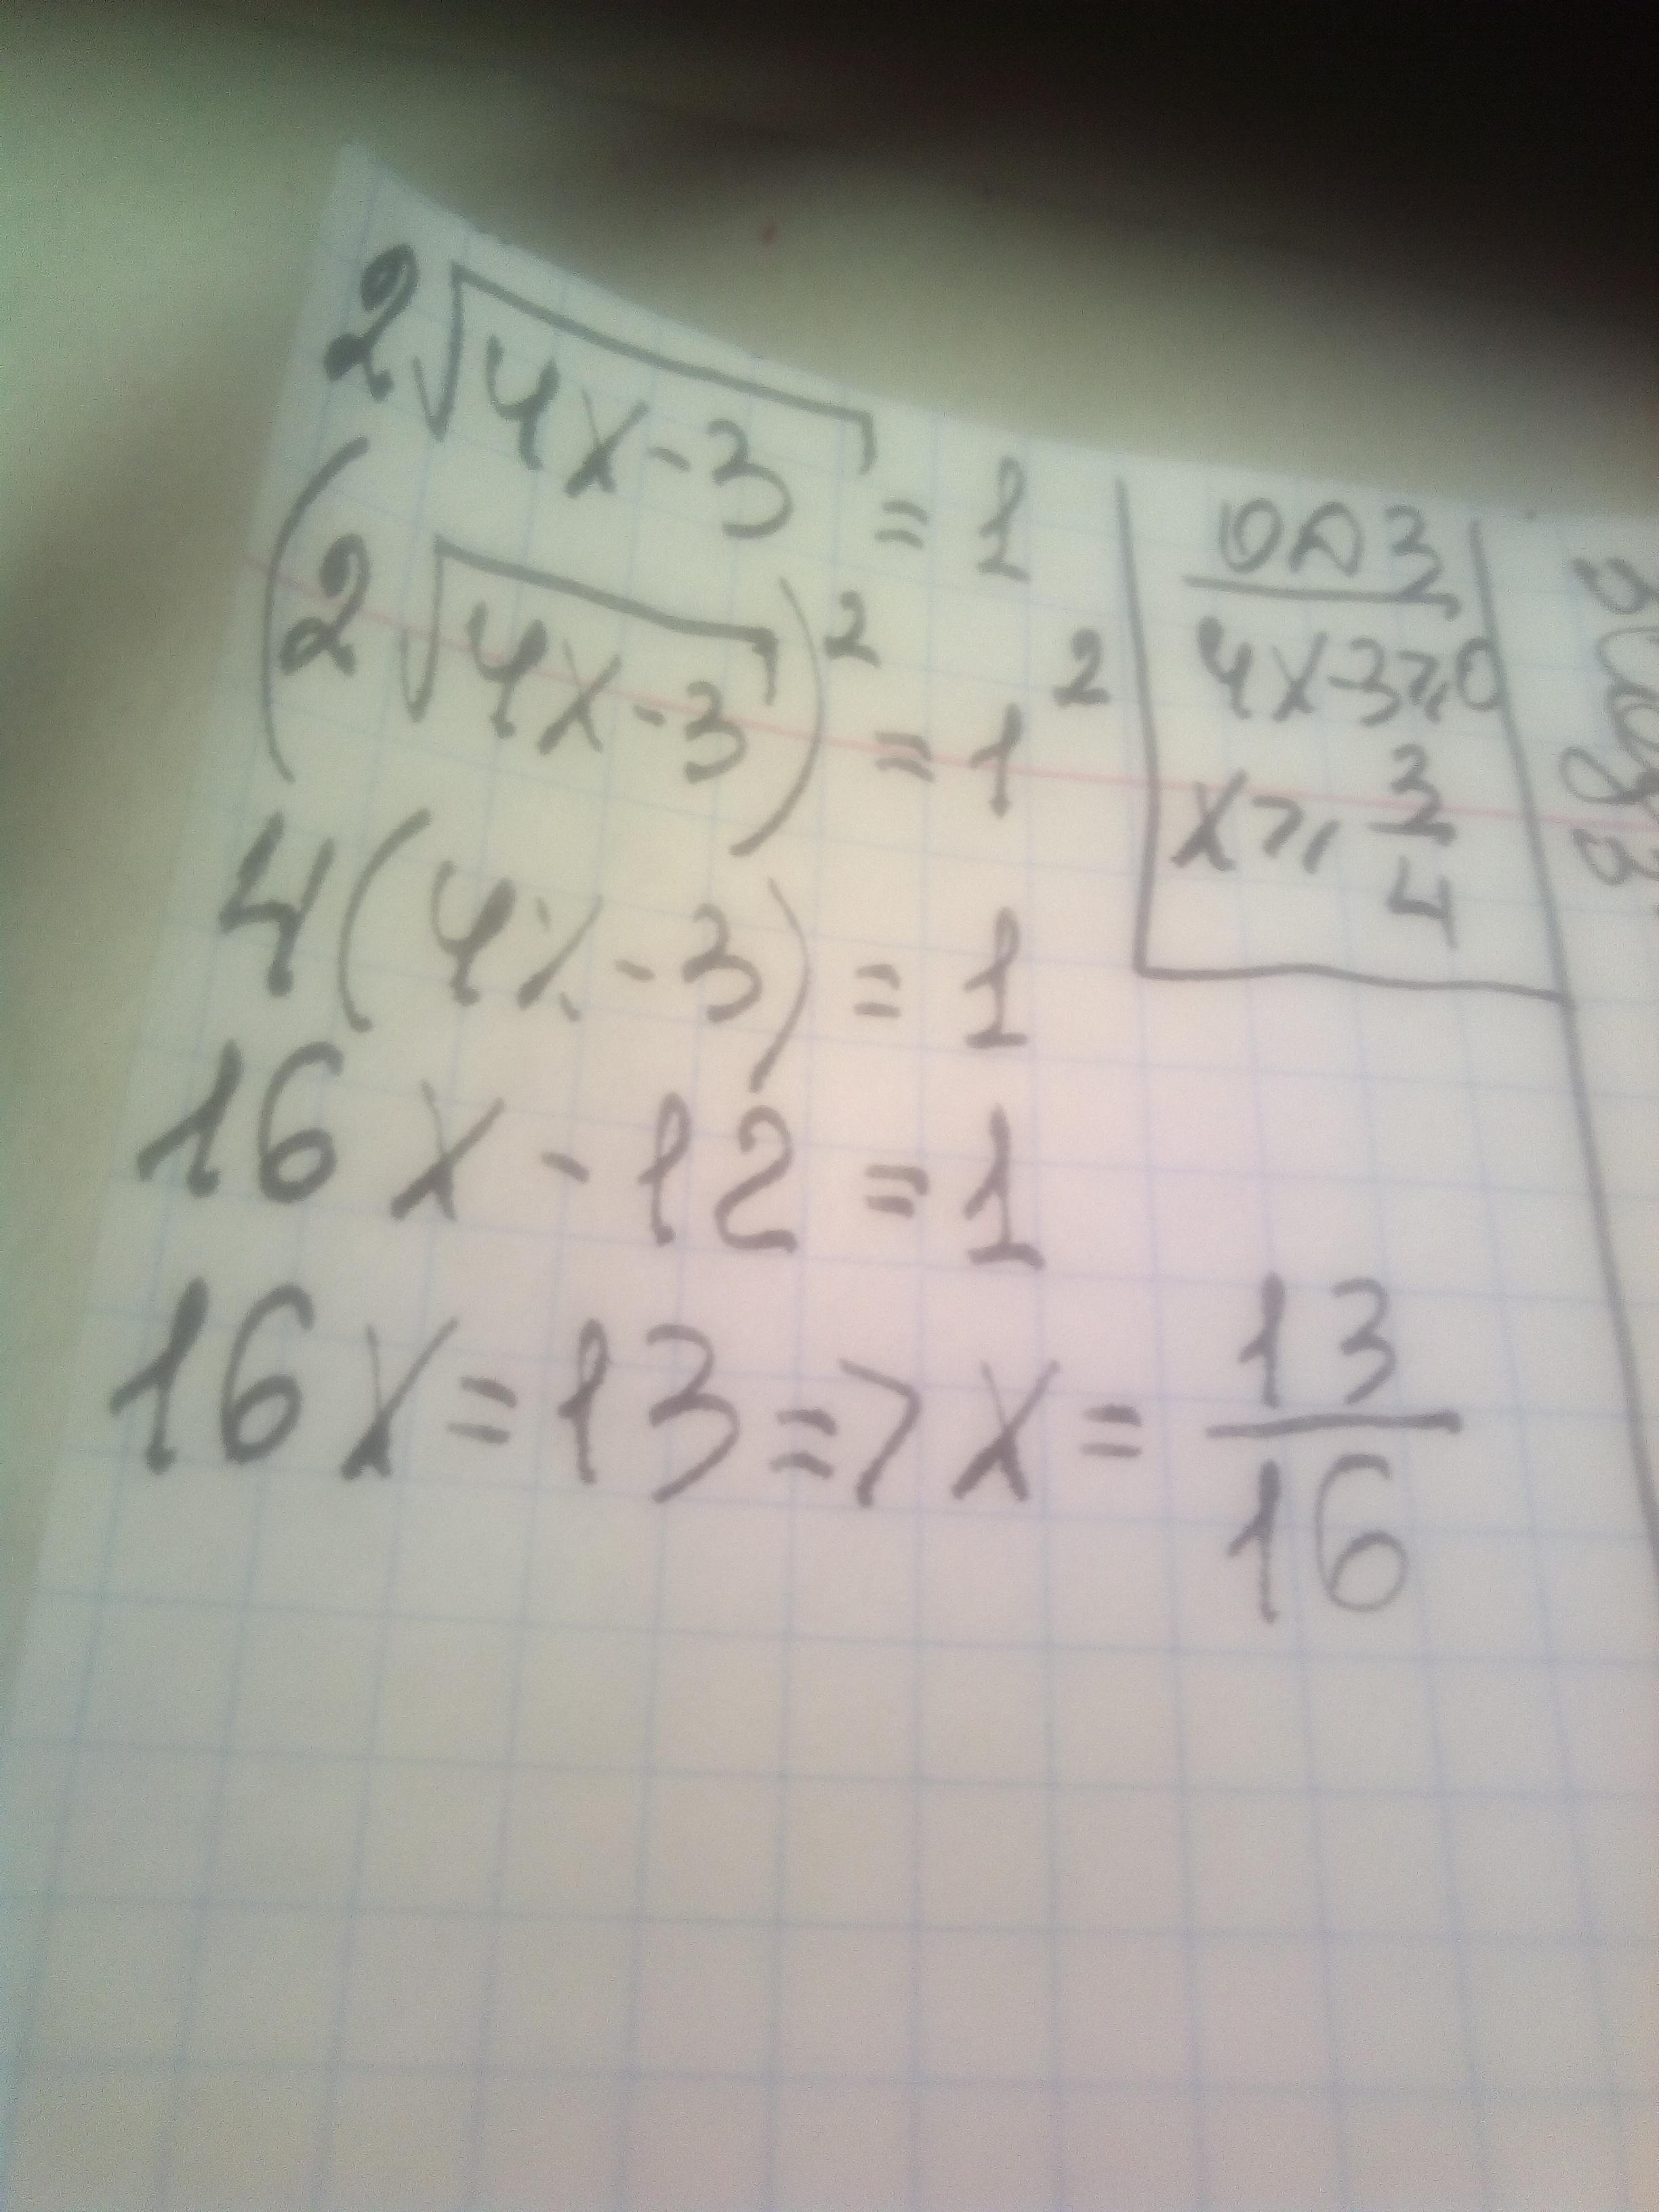 2√(4x-3) = 1
(2√(4x-3))² = 1²
4(4x-3) = 1
16x - 12 = 1
16x = 13 => x = 13/16
ОДЗ
4x-3≥0
x≥ 3/4